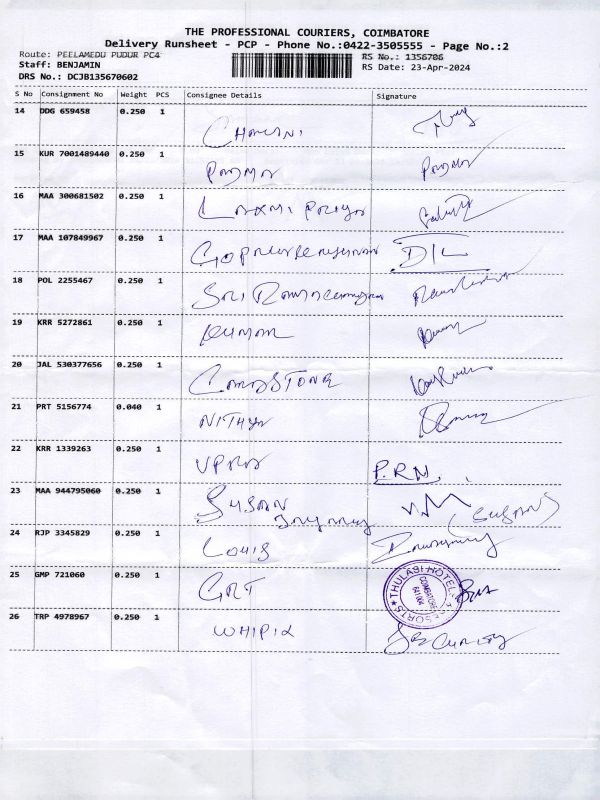 THE PROFESSIONAL COURIERS, COIMBATORE
Delivery Runsheet - PCP - Phone No.:0422-3505555 - Page No.:2
Route: PEELAMEDU PUDUR PC4
RS No.: 1356706
Staff: BENJAMIN
RS Date: 23-Apr-2024
DRS No.: DCJB135670602
S No Consignment No Weight PCS Consignee Details Signature
14 DDG 659458 0.250 1
15 KUR 7001489440 0.250 1 Padma Padma
16 MAA 300681502 0.250 1 Laxmi Priya
17 MAA 107849967 0.250 1
18 POL 2255467 0.250 1 Sri
19 KRR 5272861 0.250 1 Kumar
20 JAL 530377656 0.250 1
21 PRT 5156774 0.040 1 NITHya
22 KRR 1339263 0.250 1 P.RM
23 MAA 944795060 0.250 1 SUSAN (SUSAN)
24 RJP 3345829 0.250 1 Louis
25 GMP 721060 0.250 1 GRT THULASI HOTEL RESORTS COIMBATORE 641 004
26 TRP 4978967 0.250 1 Security